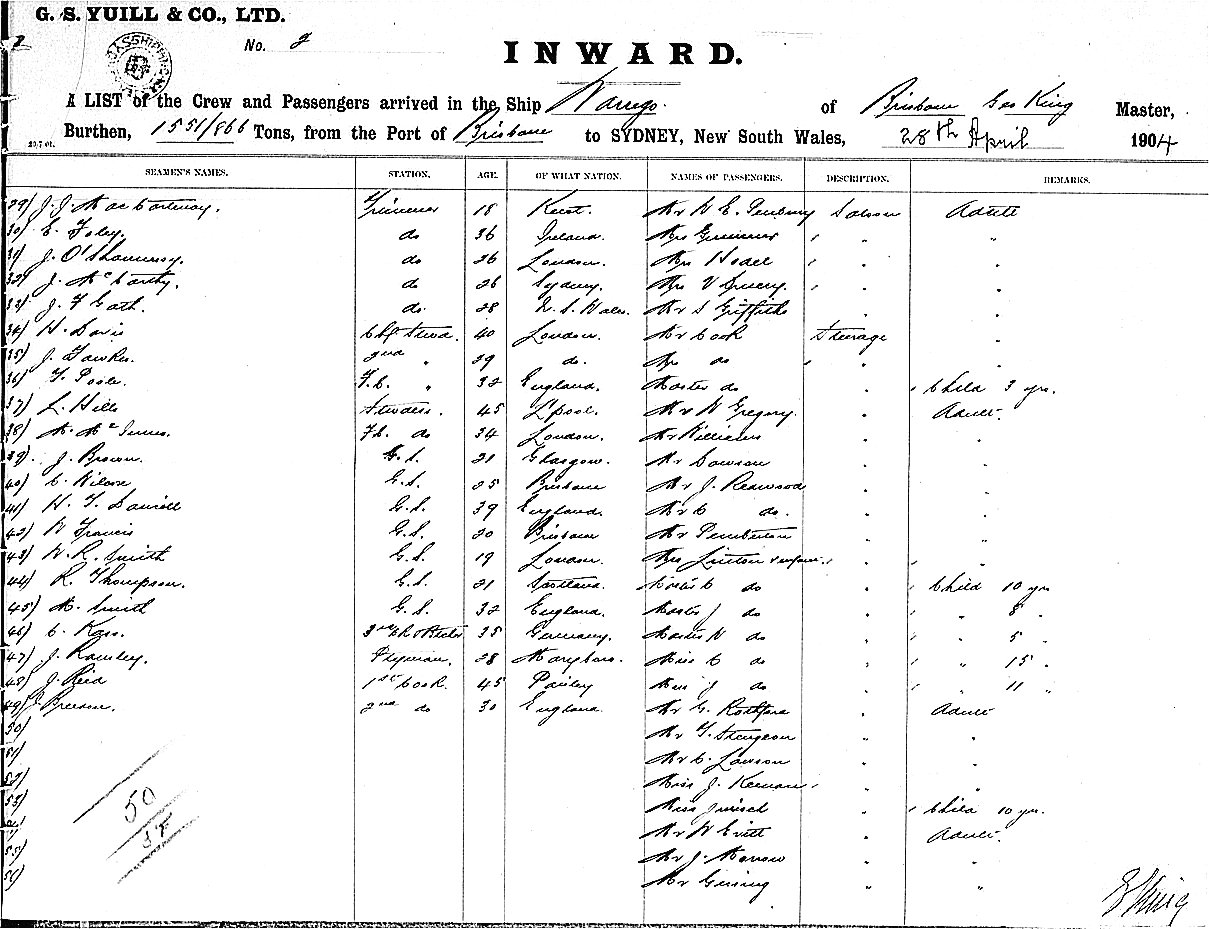 G. S. YUILL & CO., LTD.
No. 2
INWARD.
A LIST of the Crew and Passengers arrived in the Ship Warrego. of Brisbane Geo King Master,
Burthen, 1551/866 Tons, from the Port of Brisbane to SYDNEY, New South Wales, 28th April 1904
SEAMEN'S NAMES. STATION. AGE. OF WHAT NATION. NAMES OF PASSENGERS. DESCRIPTION. REMARKS.
29) J. J. MacCartney. 18 Kent. Mr W E. Saloon Adult
30) E. Foley. do 36 Ireland. Mrs " "
31) J. O'Shannessy. do 26 London. Mrs " "
32) J. McCarthy. do 26 Sydney. Mrs V " "
33) J. F Gath. do. 28 N. S. Wales. Mr S Griffiths " "
34) H. Davis Chf Stwd. 40 London. Mr Cook Steerage "
35) J. Fawkes. 2nd " 29 do. Mrs do " "
36) F. Poole. F.C. " 32 England. Master do " Child 3 yrs.
37) L. Hills Stwdess. 45 L'pool. Mr W Gregory. " Adult.
38) F.C. do 34 London. Mr Williams " "
39). J. Brown. G.S. 21 Glasgow. Mr Dawson " "
40) C. Wilson G.S. 25 Brisbane Mr J. Redwood " "
41) H. F. G.S. 39 England. Mr C do. " "
42) W Francis G.S. 20 Brisbane Mr Pemberton " "
43) W. R. Smith G.S. 19 London. Mrs Linton & infant " "
44) R. Thompson. G.S. 21 Scotland. Master C do " Child 10 yrs
45) A. Smith G.S. 32 England. Master J do " " 8 "
46) C. Kass. 35 Germany. Master W do " " 5 "
47) J. Ramsley. Ptryman. 28 Maryboro. Miss C do " " 15 "
48) J. Reid 1st Cook. 45 Paisley Miss J do " " 11 "
49) J. 2nd do 30 England. Mr G. " Adult
50) Mr T. Sturgeon " "
51) Mr C. Lawson " "
52) Miss J. Keenan " "
53) Miss " Child 10 yrs.
Mr W Evitt " Adult.
55) Mr J. Morrow " "
56) Mr " "
50
G King